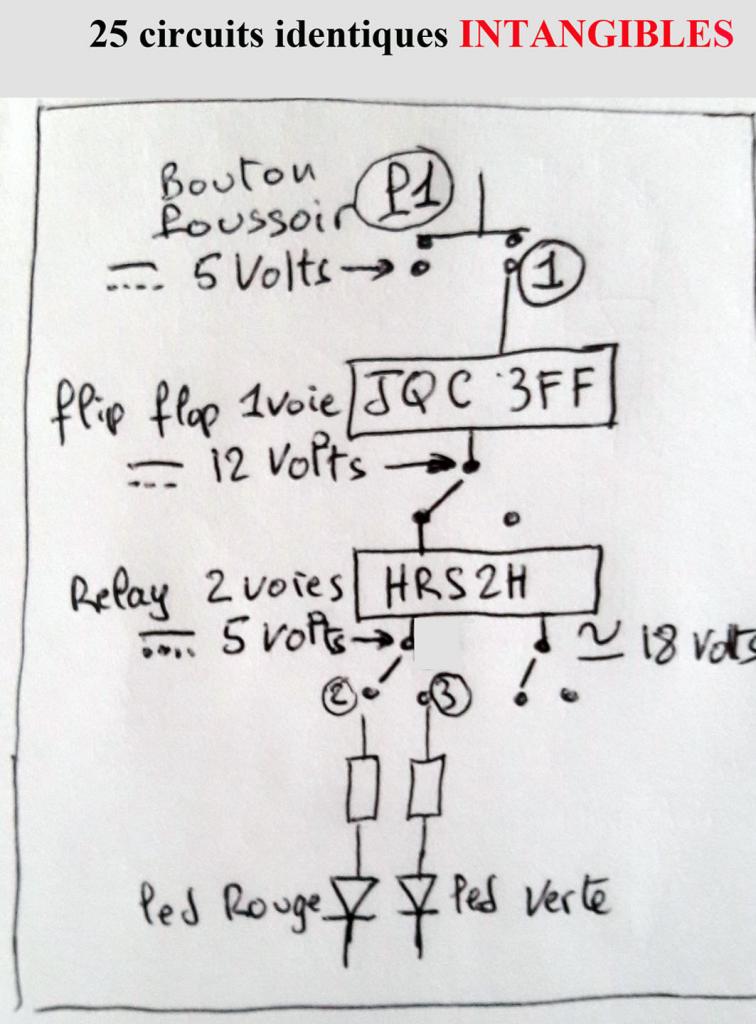 25 circuits identiques INTANGIBLES
Bouton
Poussoir P1
5 Volts
1
flip flop 1voie JQC 3FF
12 Volts
Relay 2 voies HRS2H
5 volts
18 volts
2
3
led Rouge
led Verte